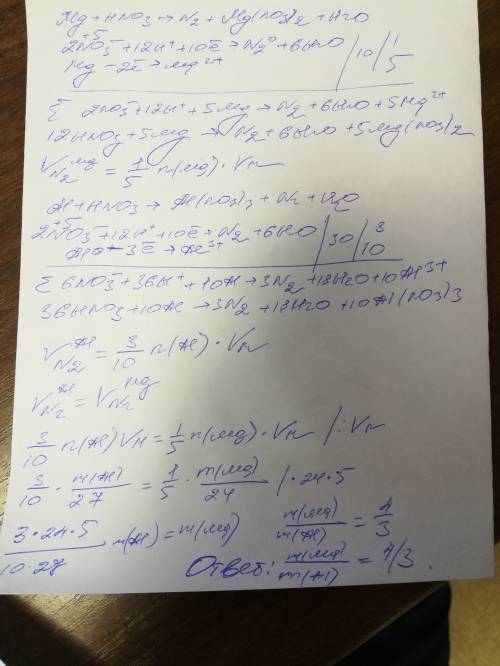 Mg + HNO3 → N2 + Mg(NO3)2 + H2O
+5
2NO3⁻ + 12H⁺ + 10ē → N2⁰ + 6H2O | 10 | 1
Mg − 2ē → Mg²⁺ 5
Σ 2NO3⁻ + 12H⁺ + 5Mg → N2 + 6H2O + 5Mg²⁺
12HNO3 + 5Mg → N2 + 6H2O + 5Mg(NO3)2
V N2 Mg = 1/5 n(Mg) · Vm
Al + HNO3 → Al(NO3)3 + N2 + H2O
+5
2NO3⁻ + 12H⁺ + 10ē → N2 + 6H2O | 30 | 3
Al⁰ − 3ē → Al³⁺ 10
Σ 6NO3⁻ + 36H⁺ + 10Al → 3N2 + 18H2O + 10Al³⁺
36HNO3 + 10Al → 3N2 + 18H2O + 10Al(NO3)3
V N2 Al = 3/10 n(Al) · Vm
V N2 Al = V N2 Mg
3/10 n(Al) Vm = 1/5 n(Mg) · Vm / : Vm
3/10 · m(Al)/27 = 1/5 · m(Mg)/24 / · 24 · 5
3·24·5/10·27 m(Al) = m(Mg) m(Mg)/m(Al) = 4/3
Ответ: m(Mg)/m(Al) = 4/3.